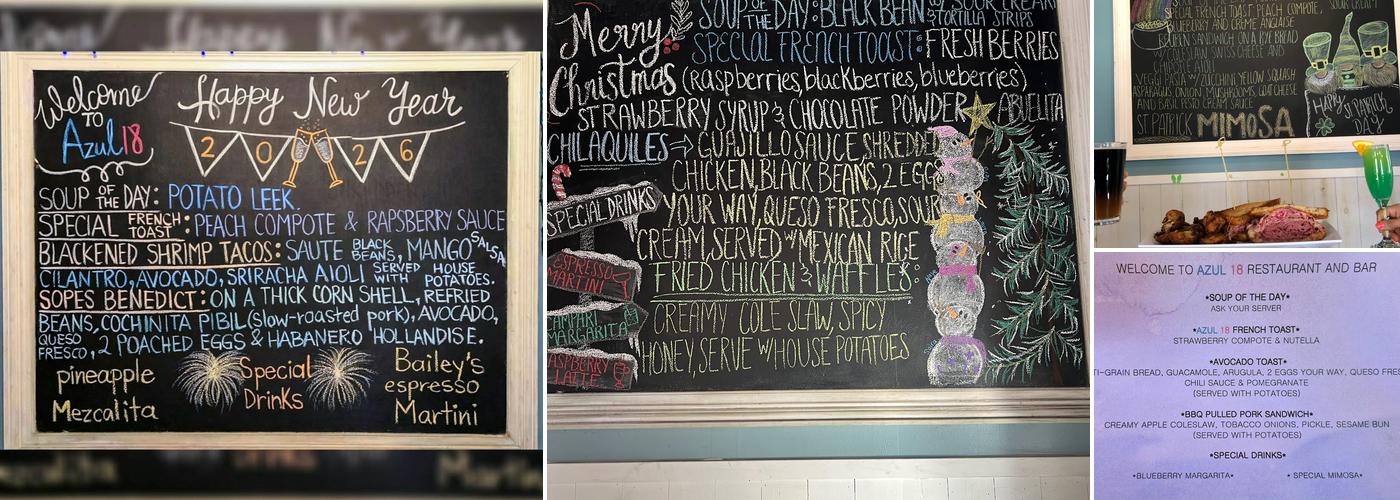 Welcome
TO
Azul18
Happy New Year
2026
SOUP OF THE DAY: POTATO LEEK.
SPECIAL FRENCH TOAST: PEACH COMPOTE & RAPSBERRY SAUCE
BLACKENED SHRIMP TACOS: SAUTE BLACK BEANS, MANGO SALSA,
CILANTRO, AVOCADO, SRIRACHA AIOLI SERVED WITH HOUSE POTATOES.
SOPES BENEDICT: ON A THICK CORN SHELL, REFRIED
BEANS, COCHINITA PIBIL (slow-roasted pork), AVOCADO,
QUESO FRESCO, 2 POACHED EGGS & HABANERO HOLLANDISE.
Special
Drinks
pineapple
Mezcalita
Bailey's
espresso
Martini
Merry
Christmas
SOUP OF THE DAY: BLACK BEAN W/ SOUR CREAM
& TORTILLA STRIPS
SPECIAL FRENCH TOAST: FRESH BERRIES
(Raspberries, blackberries, blueberries)
STRAWBERRY SYRUP & CHOCOLATE POWDER ABUELITA
CHILAQUILES → GUAJILLO SAUCE, SHREDDED
CHICKEN, BLACK BEANS, 2 EGGS
YOUR WAY, QUESO FRESCO, SOUR
CREAM, SERVED W/ MEXICAN RICE
FRIED CHICKEN & WAFFLES:
CREAMY COLE SLAW, SPICY
HONEY, SERVE W/ HOUSE POTATOES
SPECIAL DRINKS
ESPRESSO
MARTINI
MARGARITA
RASPBERRY
LATTE
SPECIAL FRENCH TOAST PEACH COMPOTE,
BLUEBERRY AND CREME ANGLAISE
REUBEN SANDWICH ON A RYE BREAD
SWISS CHEESE AND
CHIPOTLE AIOLI
VEGGI PASTA W/ ZUCCHINI, YELLOW SQUASH
ASPARAGUS, ONION, MUSHROOMS, GOAT CHEESE
AND BASIL PESTO CREAM SAUCE
ST PATRICK MIMOSA
Happy
ST PATRICK
DAY
WELCOME TO AZUL 18 RESTAURANT AND BAR
*SOUP OF THE DAY*
ASK YOUR SERVER
*AZUL 18 FRENCH TOAST*
STRAWBERRY COMPOTE & NUTELLA
*AVOCADO TOAST*
TI-GRAIN BREAD, GUACAMOLE, ARUGULA, 2 EGGS YOUR WAY, QUESO FRES
CHILI SAUCE & POMEGRANATE
(SERVED WITH POTATOES)
*BBQ PULLED PORK SANDWICH*
CREAMY APPLE COLESLAW, TOBACCO ONIONS, PICKLE, SESAME BUN
(SERVED WITH POTATOES)
*SPECIAL DRINKS*
*BLUEBERRY MARGARITA*
* SPECIAL MIMOSA*